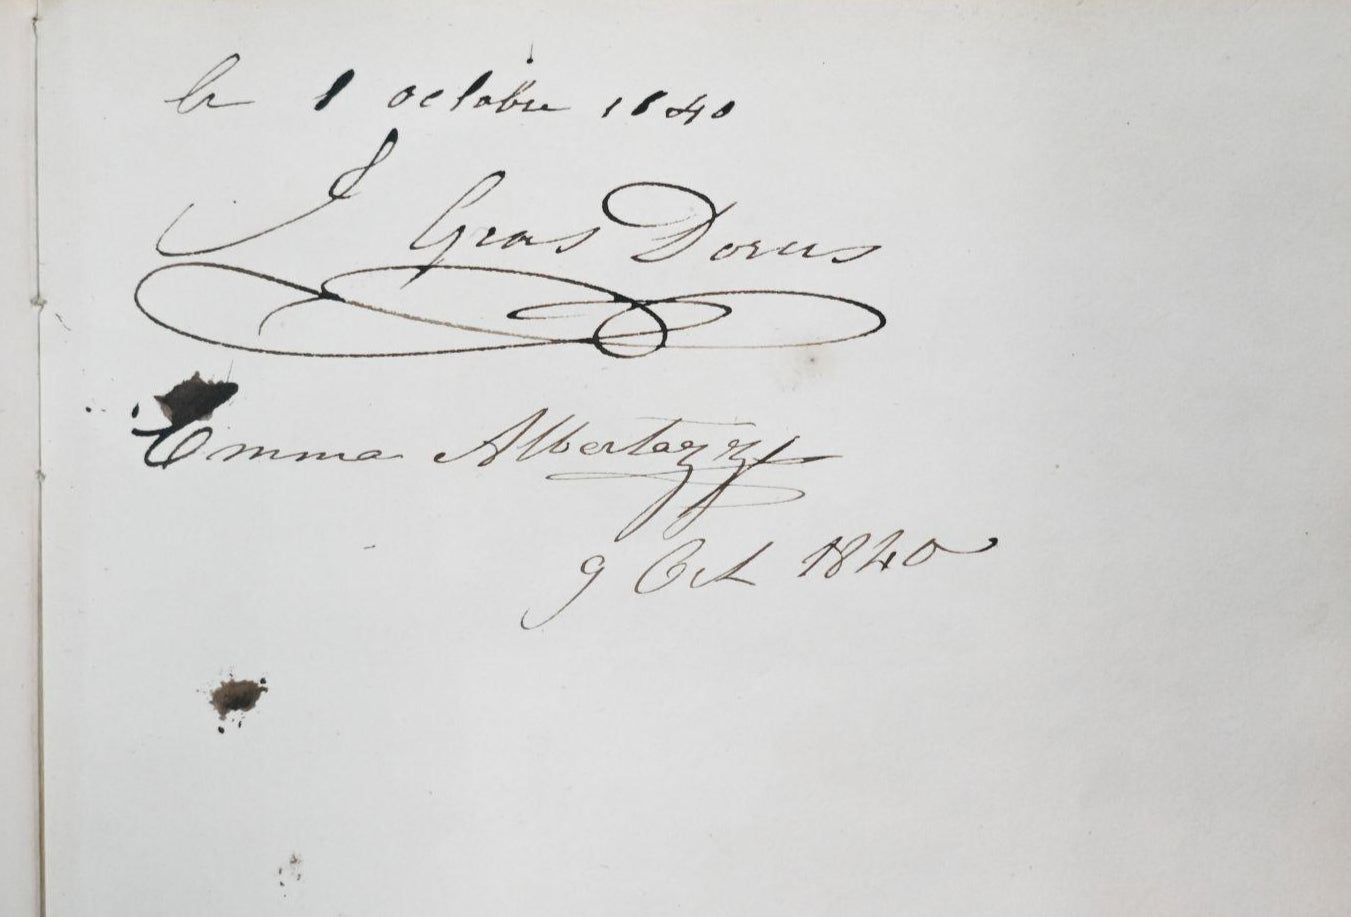 le 1 octobre 1840
J Gras Dorus
Emma Albertazzi
9 Oct 1840